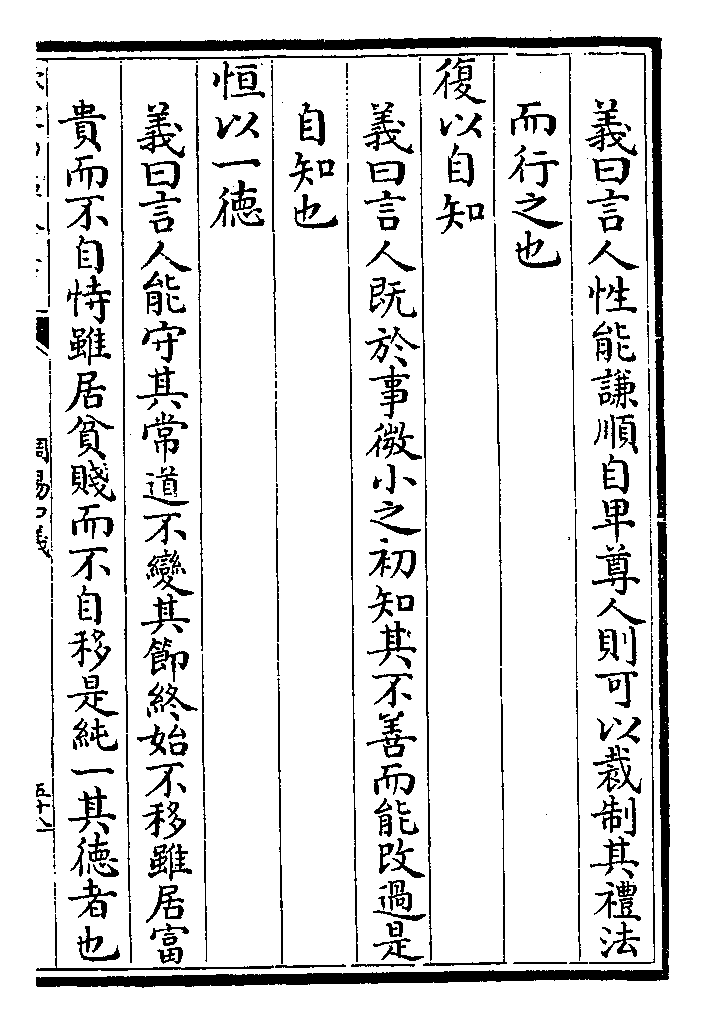 義曰言人性能謙順自卑尊人則可以裁制其禮法
而行之也
復以自知
義曰言人既於事微小之初知其不善而能改過是
自知也
恒以一德
義曰言人能守其常道不變其節終始不移雖居富
貴而不自恃雖居貧賤而不自移是純一其德者也
周易口義